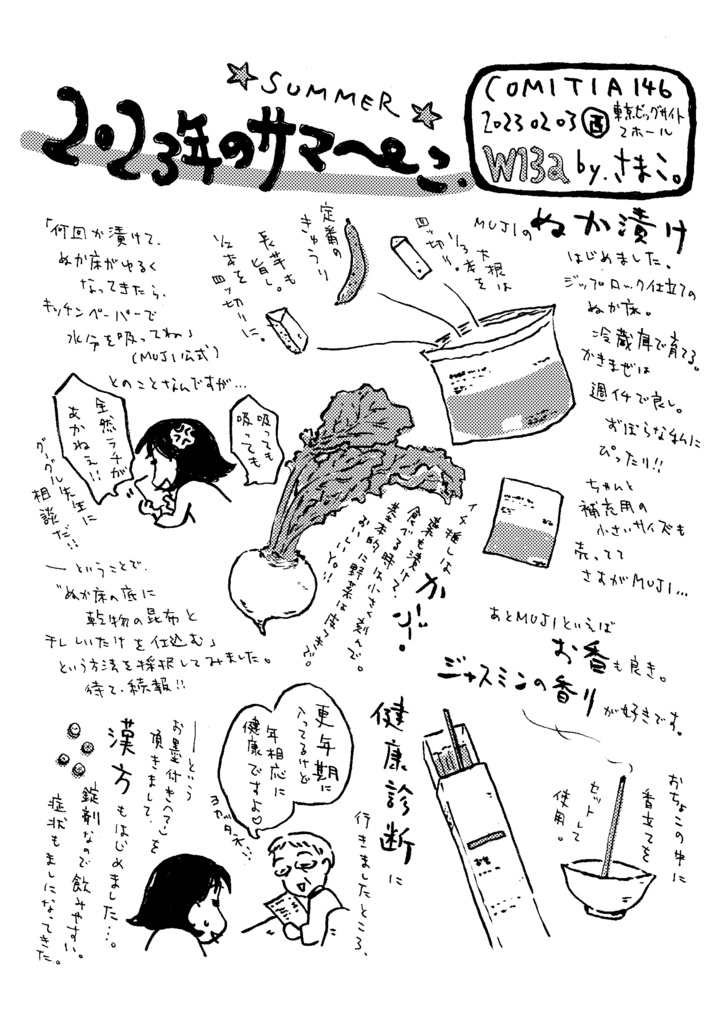 SUMMER
2023年のサマーペーペー
COMITIA146
2023 02 03 西 東京ビッグサイト
2ホール
W13a by.さまこ。
MUJIの ぬか漬け
はじめました。
ジップロック仕立ての
ぬか床。
冷蔵庫で育てる。
かきまぜは
週イチで良し。
ずぼらな私に
ぴったり!!
ちゃんと
補充用の
小さいサイズも
売ってて
さすがMUJI…
大根は
1/3本を
四ッ切り。
定番の
きゅうり
長芋も
旨し。
1/2本を
四ッ切りに。
「何回か漬けて、
ぬか床がゆるく
なってきたら、
キッチンペーパーで
水分を吸ってね」
(MUJI公式)
とのことなんですが…
吸っても
吸っても
全然ラチが
あかねえ!!
グーグル先生に
相談だ!!
—ということで、
"ぬか床の底に
乾物の昆布と
干ししいたけを仕込む"
という方法を採択してみました。
待て、続報!!
イチ推しは
かぶー!
葉も漬けて、
食べる時は小さく刻んで。
基本的に野菜は皮つきで。
おいしいYO!!
あとMUJIといえば
お香も良き。
ジャスミンの香りが好きです。
おちょこの中に
香立てを
セットして
使用。
健康診断に
行きましたところ、
更年期に
入ってるけど
年相応に
健康ですよ♡
ヨカッタネ…
—という
お墨付き(?)を
頂きまして、
漢方もはじめました…。
錠剤なので飲みやすい。
症状もましになってきた。